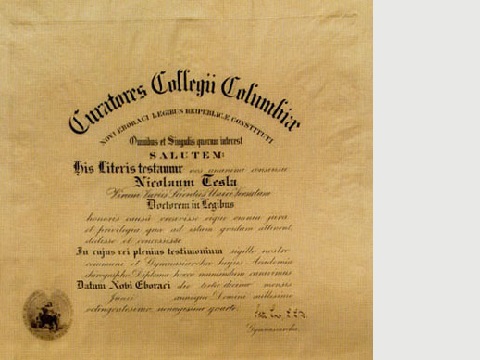 Curatores Collegii Columbiæ
NOVI EBORACI LEGIBUS REIPUBLICÆ CONSTITUTI
Omnibus et Singulis quorum interest
SALUTEM:
His Literis testamur nos unanimi consensu
Nicolaum Tesla
Virum
Doctorem in Legibus
honoris causâ creavisse eique omnia jura
et privilegia quæ ad istum gradum attinent,
dedisse et concessisse
In cujus rei plenius testimonium sigillo nostro
communi et Gymnasiarchæ hujus Academiæ
chirographo Diploma hocce muniendum curavimus
Datum Novi Eboraci die tertio decimo mensis
Junii annoque Domini millesimo
octingentesimo nonagesimo quarto.
Gymnasiarcha.